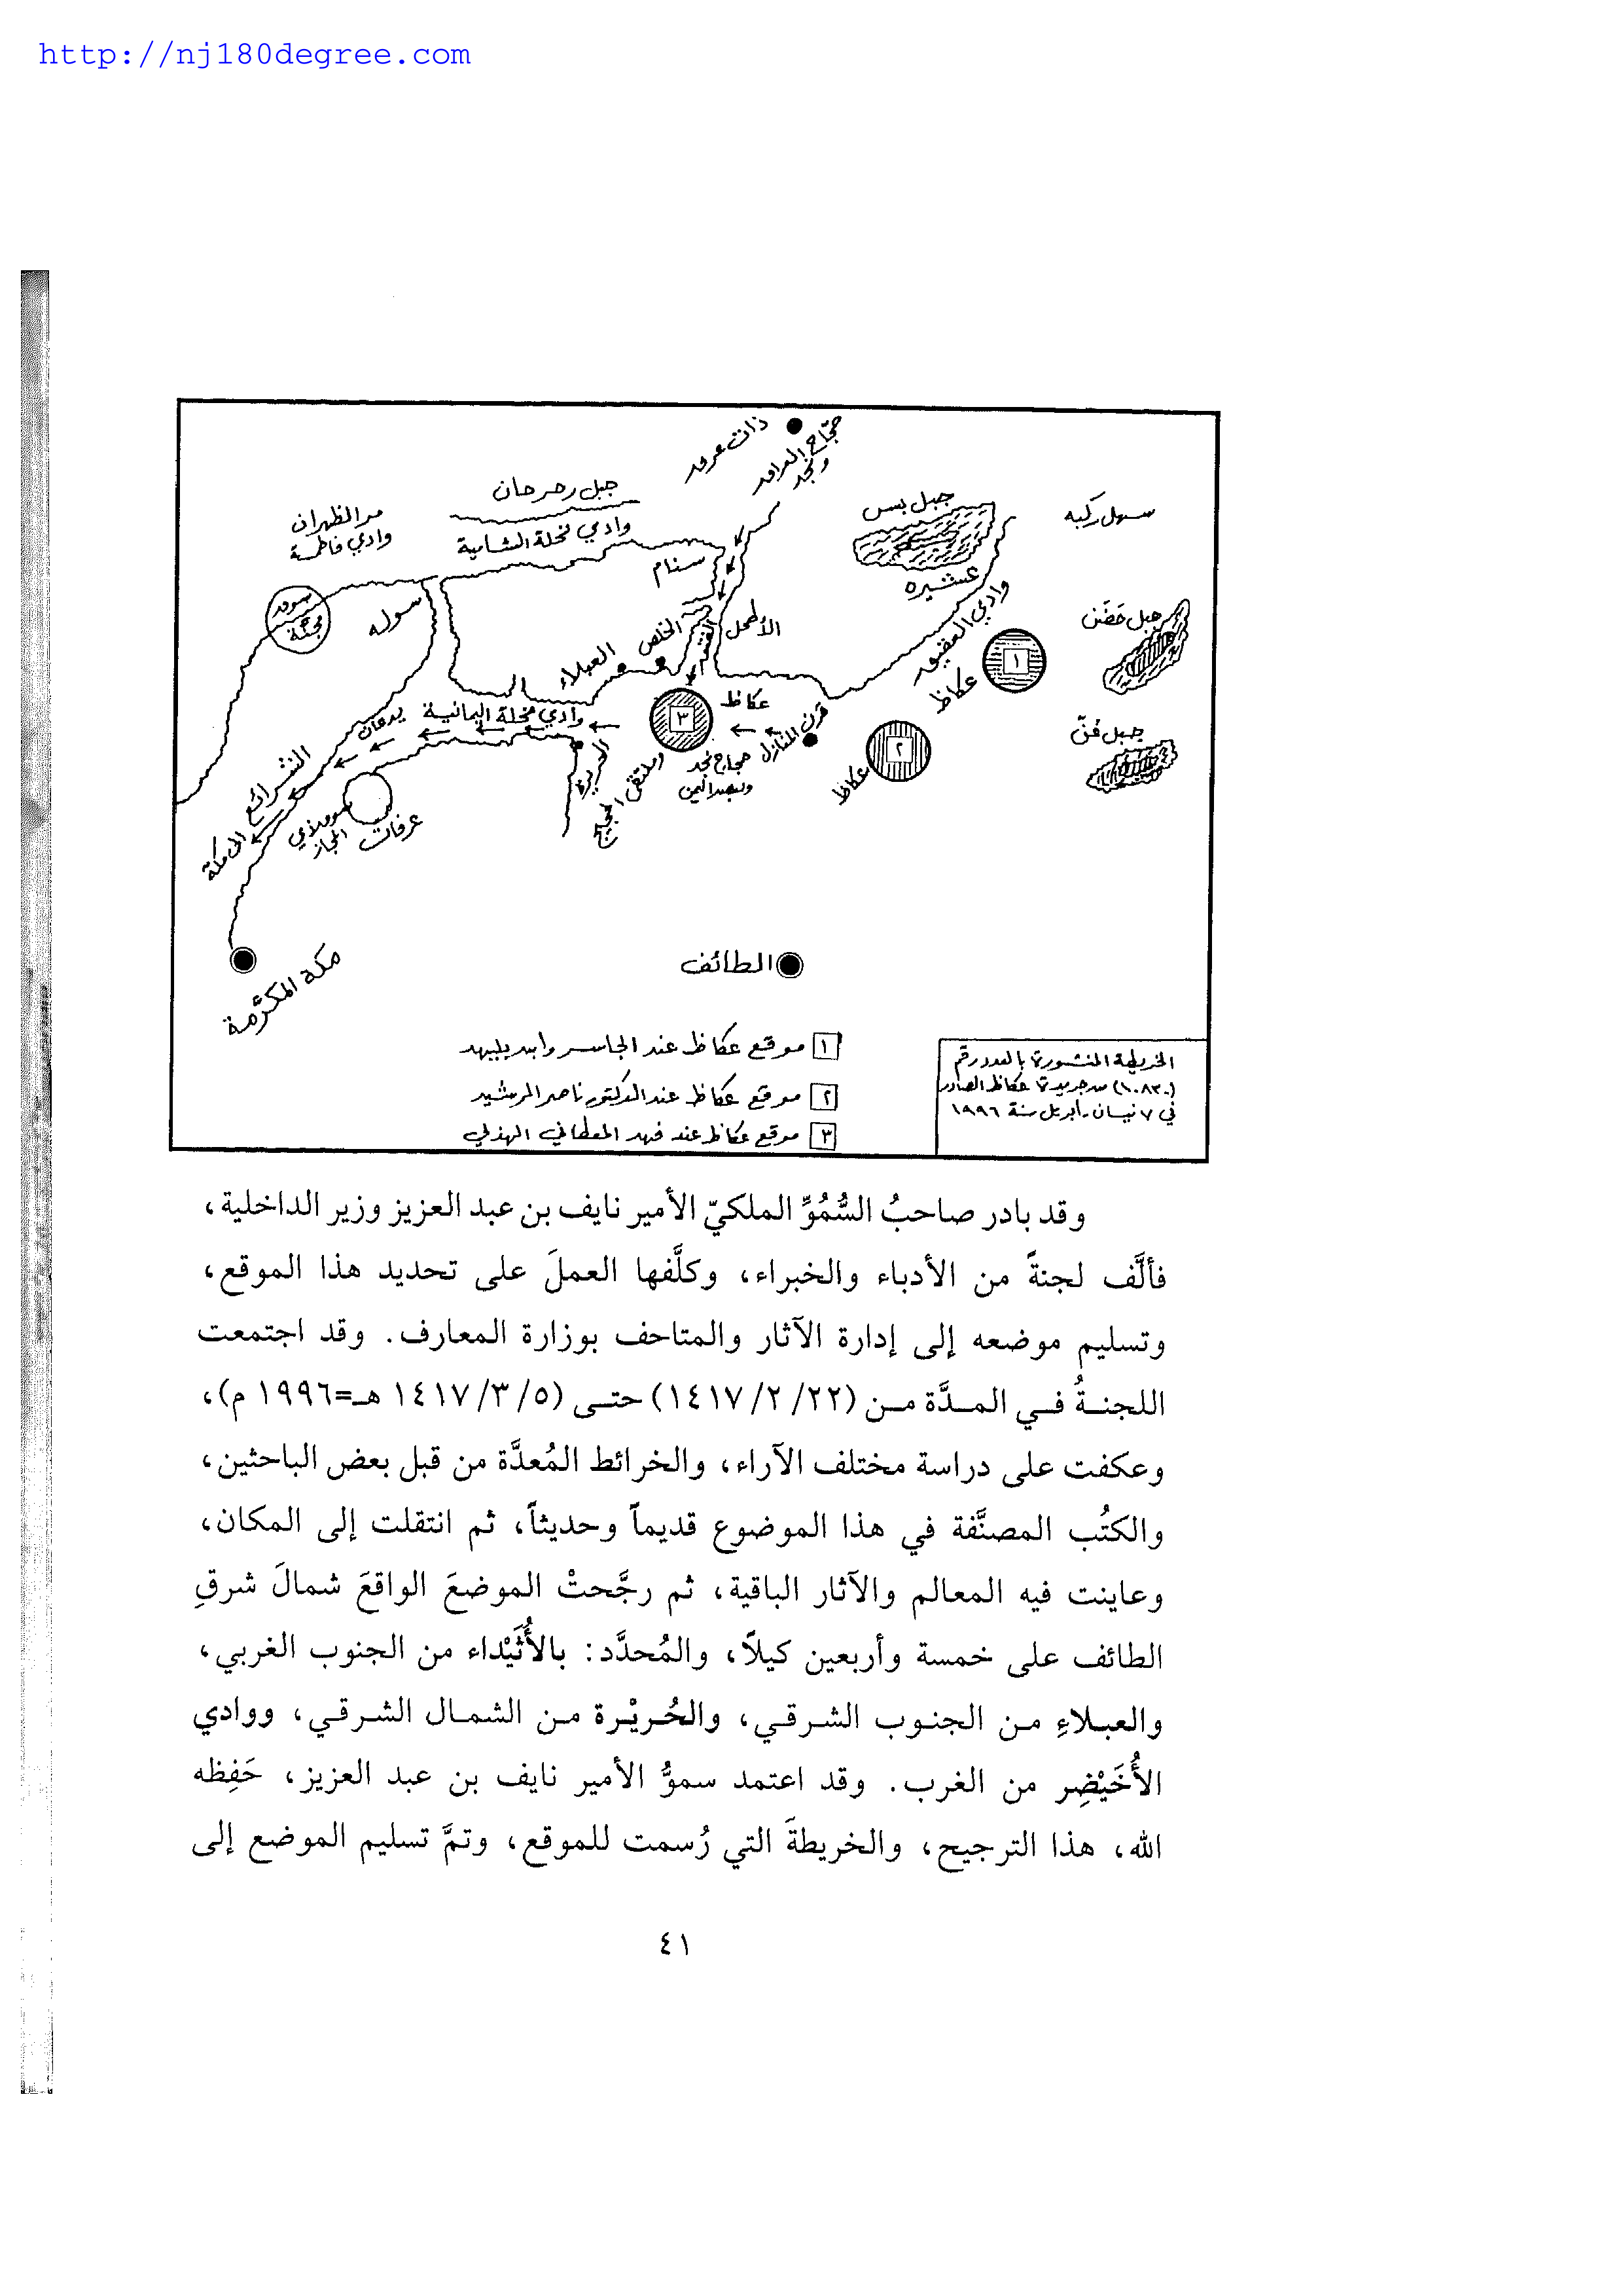 http://nj180degree.com
ذات عرق
حجّاج العراق
ونجد
جبل رحرحان
وادي نخلة الشامية
مر الظهران
وادي فاطمة
جبل بس
سهل ركبه
سنام
عشيره
وادي العقيق
جبل حَضَن
سوق
مجنة
سوله
الخلص
الأطحل
العبلاء
١
عكاظ
عكاظ
٣
قرن المنازل
٢
عكاظ
جبل قنّ
وادي نخلة اليمانية
يدعان
حجاج نجد
وبعض اليمن
وملتقى الحجيج
الشرائع
الى مكة
سوق ذي
المجاز
عرفات
مكة المكرّمة
الطائف
١ موقع عكاظ عند الجاسر وابن بليهد
٢ موقع عكاظ عند الدكتور ناصر الرشيد
٣ موقع عكاظ عند فهد المعطاني الهذلي
الخريطة المنشورة بالعدد رقم
(١٠٨٣٠) من جريدة عكاظ الصادر
في ٧ نيسان - ابريل سنة ١٩٩٦
وقد بادر صاحبُ السُّمُوِّ الملكيّ الأمير نايف بن عبد العزيز وزير الداخلية،
فألَّف لجنةً من الأدباء والخبراء، وكلَّفها العملَ على تحديد هذا الموقع،
وتسليم موضعه إلى إدارة الآثار والمتاحف بوزارة المعارف. وقد اجتمعت
اللجنةُ في المدَّة من (٢٢/ ٢/ ١٤١٧) حتى (٥/ ٣/ ١٤١٧ هـ=١٩٩٦ م)،
وعكفت على دراسة مختلف الآراء، والخرائط المُعدَّة من قبل بعض الباحثين،
والكتُب المصنَّفة في هذا الموضوع قديماً وحديثاً، ثم انتقلت إلى المكان،
وعاينت فيه المعالم والآثار الباقية، ثم رجَّحتْ الموضعَ الواقعَ شمالَ شرقِ
الطائف على خمسة وأربعين كيلاً، والمُحدَّد: بالأُثَيْداء من الجنوب الغربي،
والعبلاءِ من الجنوب الشرقي، والحُريْرة من الشمال الشرقي، ووادي
الأُخَيْضِر من الغرب. وقد اعتمد سموُّ الأمير نايف بن عبد العزيز، حَفِظه
الله، هذا الترجيح، والخريطةَ التي رُسمت للموقع، وتمَّ تسليم الموضع إلى
٤١